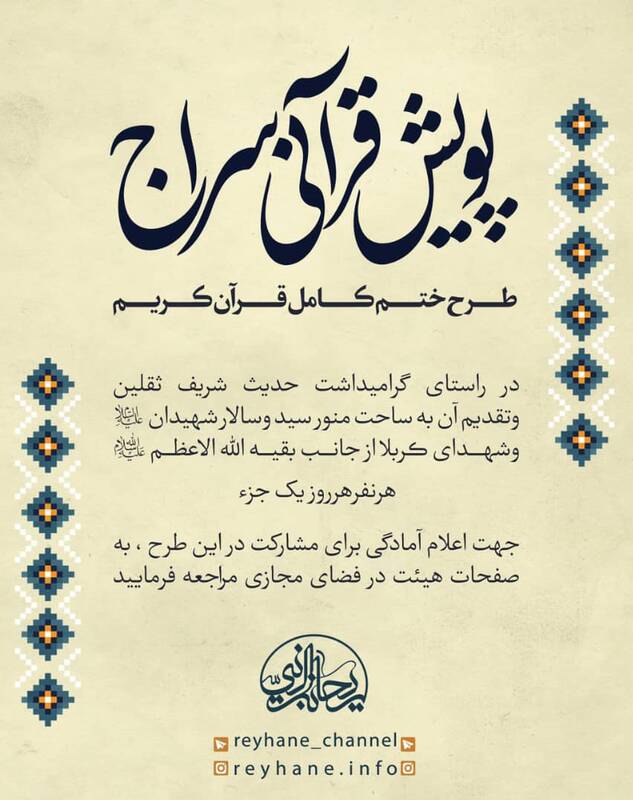 پویش قرآنی سراج
طرح ختم کامل قرآن کریم
در راستای گرامیداشت حدیث شریف ثقلین
وتقدیم آن به ساحت منور سید وسالار شهیدان علیه‌السلام
وشهدای کربلا از جانب بقیه الله الاعظم
هرنفرهرروز یک جزء
جهت اعلام آمادگی برای مشارکت در این طرح ، به
صفحات هیئت در فضای مجازی مراجعه فرمایید
ریحانة النبی
reyhane_channel
reyhane.info